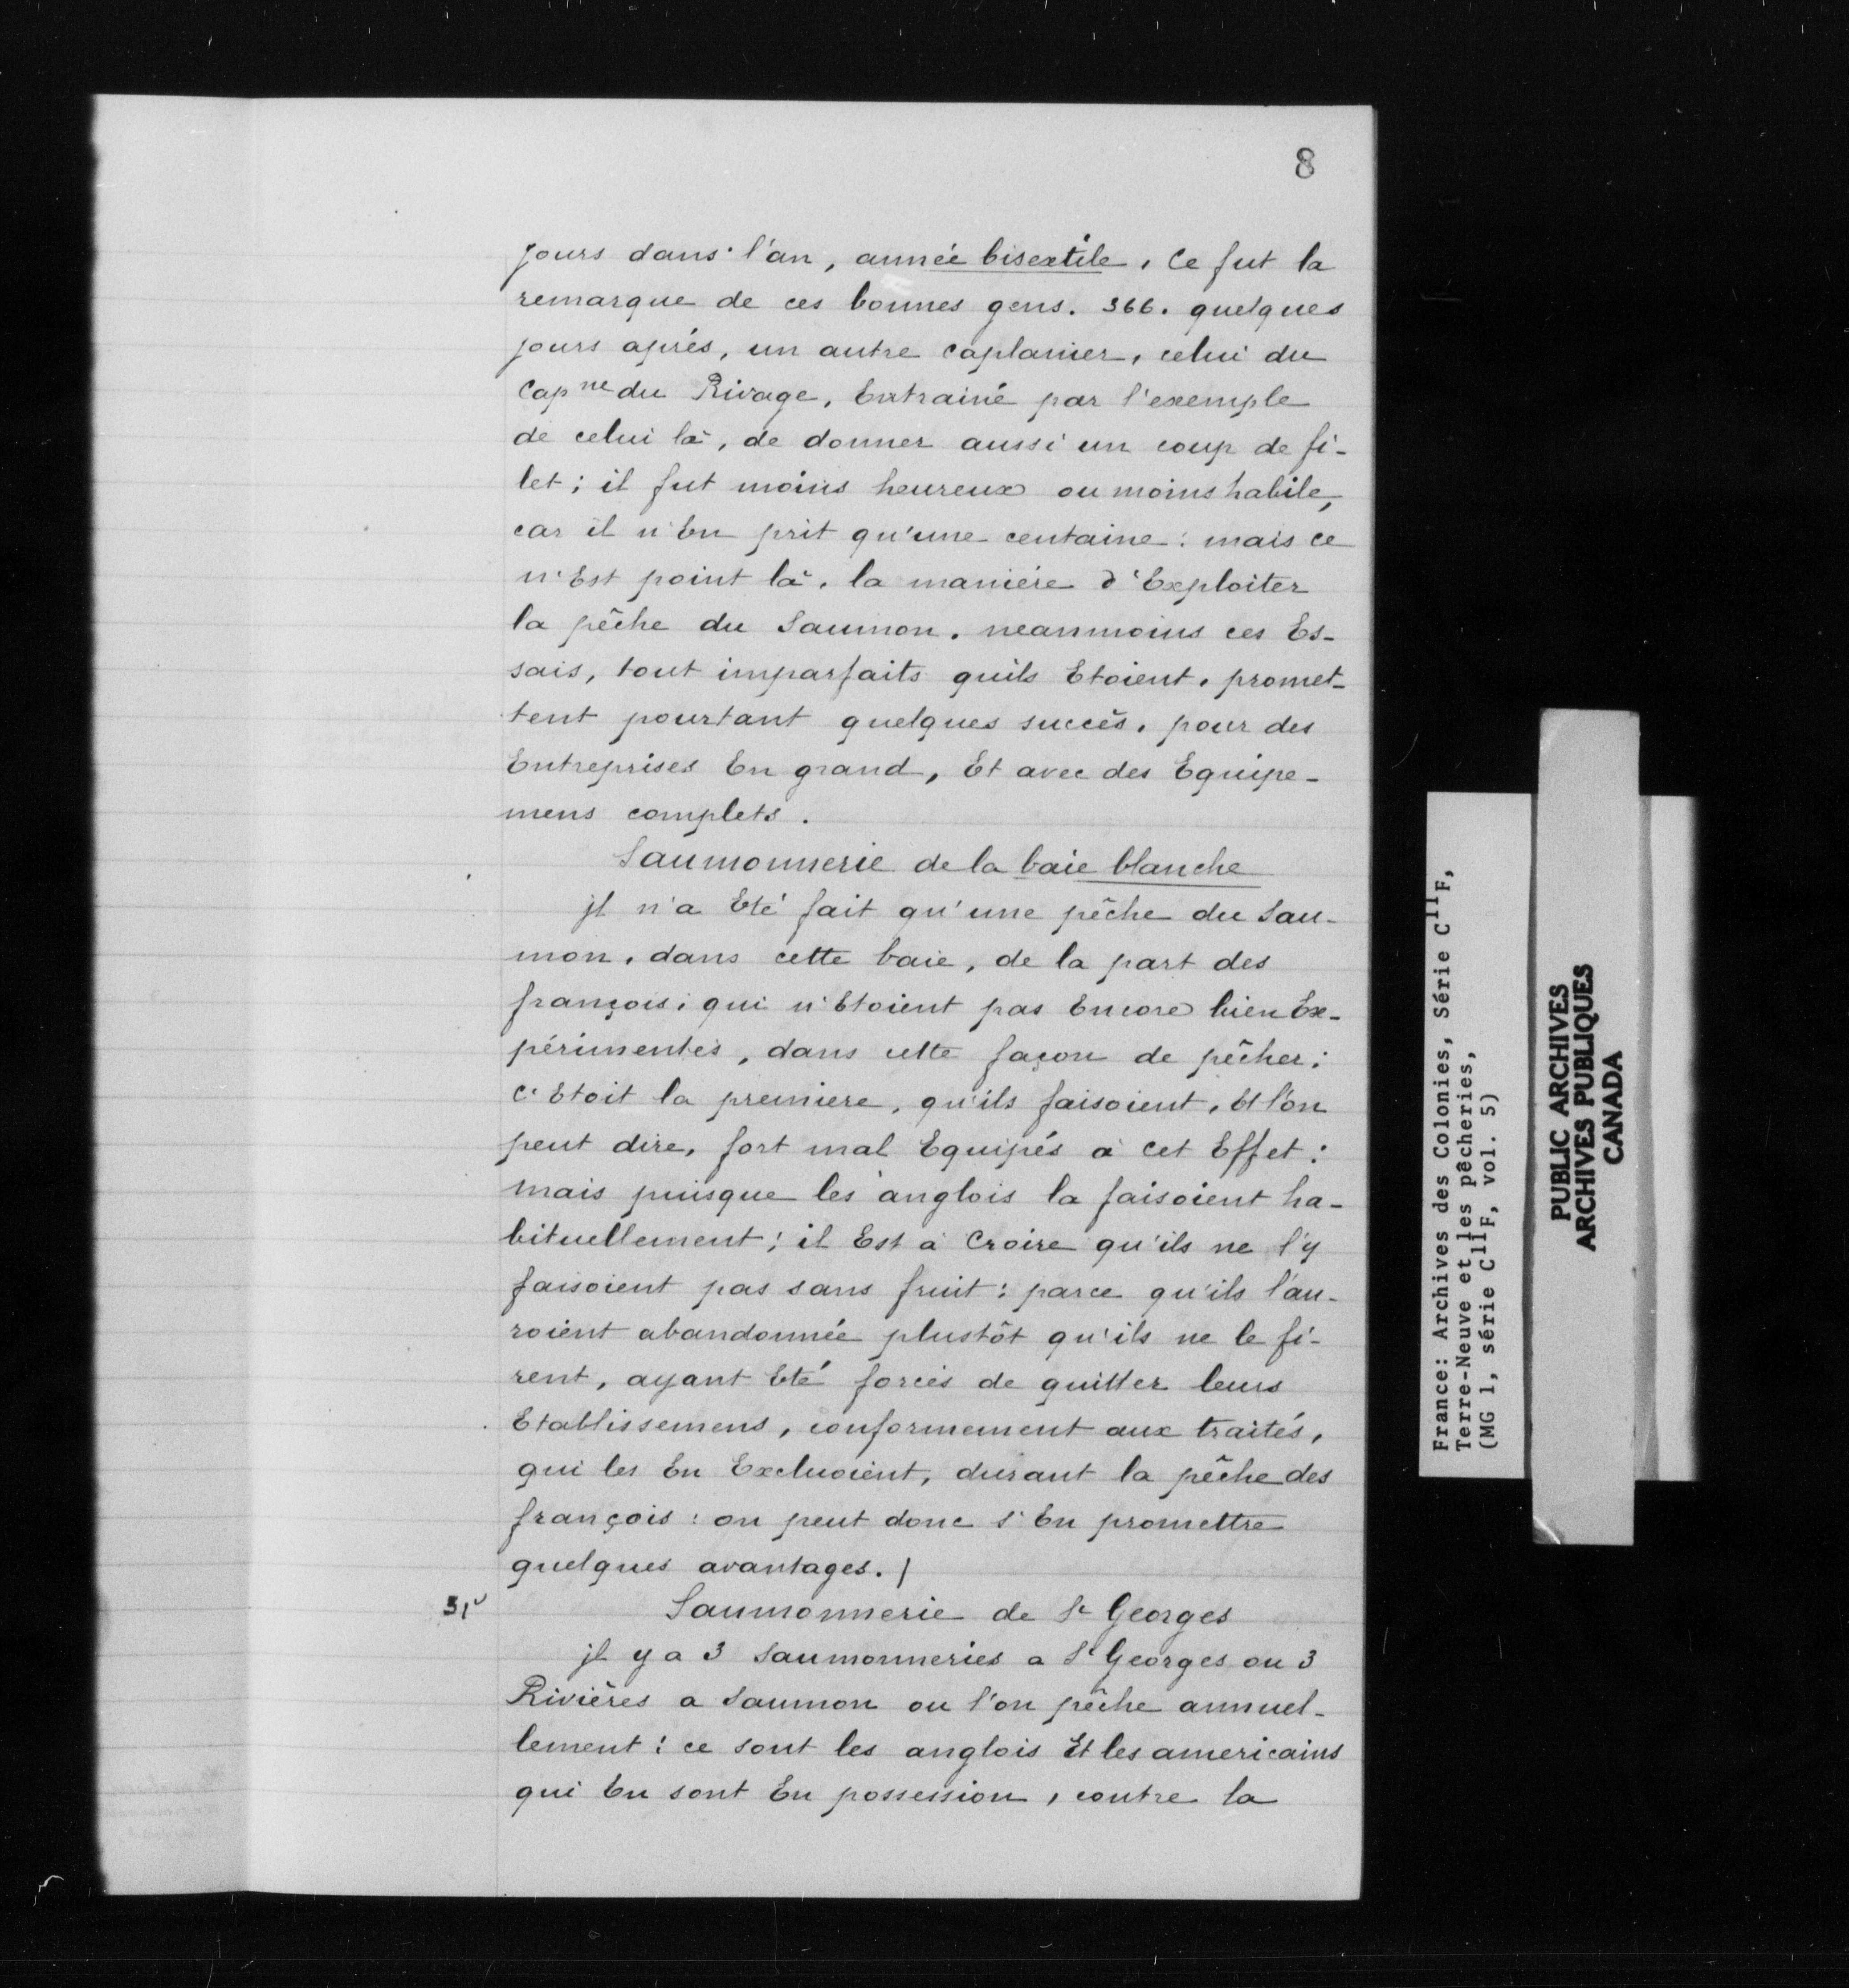 8
jours dans l'an, année bisextile, Ce fut la
remarque de ces bonnes gens. 366. quelques
jours aprés, un autre caplanier, celui du
Cap ne du Rivage, Entrainé par l'exemple
de celui là, de donner aussi un coup de fi-
let; il fut moins heureux ou moins habile,
car il n'En prit qu'une centaine: mais ce
n'Est point là, la maniére d'Exploiter
la pêche du Saumon. neanmoins ces Es-
sais, tout imparfaits quils Etoient, promet-
tent pourtant quelques succès, pour des
Entreprises En grand, Et avec des Equipe-
mens complets.
Saumonnerie de la baie blanche
jl n'a Eté fait qu'une pêche du Sau-
mon, dans cette baie, de la part des
françois; qui n'Etoient pas Encore bien Ex-
périmentés, dans cette façon de pêcher;
C'Etoit la premiere, qu'ils faisoient, Et l'on
peut dire, fort mal Equipés à cet Effet:
mais puisque les anglois la faisoient ha-
bituellement; il Est à Croire qu'ils ne l'y
faisoient pas sans fruit: parce qu'ils l'au-
roient abandonnée plustôt qu'ils ne le fi-
rent, ayant Eté forcés de quitter leurs
Etablissemens, conformement aux traités,
qui les En Excluoient, durant la pêche des
françois: on peut donc s'En promettre
quelques avantages. /
31v Saumonnerie de St Georges
jl y a 3 Saumonneries a St Georges ou 3
Rivières a Saumon ou l'on pêche annuel-
lement: ce sont les anglois Et les americains
qui En sont En possession, contre la
France: Archives des Colonies, Série C11F,
Terre-Neuve et les pêcheries,
(MG 1, série C11F, vol. 5)
PUBLIC ARCHIVES
ARCHIVES PUBLIQUES
CANADA